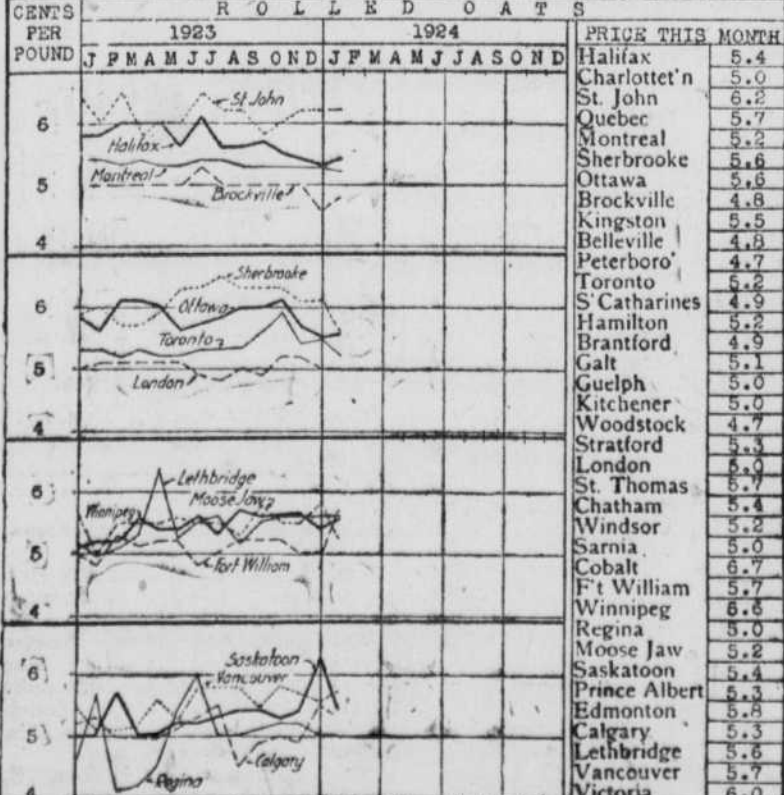 ROLLED OATS
CENTS PER POUND
1923 1924
J F M A M J J A S O N D J F M A M J J A S O N D
6
St John
Halifax
Montreal
Brockville
5
4
Sherbrooke
6
Ottawa
Toronto
5
London
4
Lethbridge
6
Moose Jaw
Winnipeg
5
Fort William
4
Saskatoon
6
Vancouver
5
Calgary
Regina
4
PRICE THIS MONTH
Halifax 5.4
Charlottet'n 5.0
St. John 6.2
Quebec 5.7
Montreal 5.2
Sherbrooke 5.6
Ottawa 5.6
Brockville 4.8
Kingston 5.5
Belleville 4.8
Peterboro' 4.7
Toronto 5.2
S' Catharines 4.9
Hamilton 5.2
Brantford 4.9
Galt 5.1
Guelph 5.0
Kitchener 5.0
Woodstock 4.7
Stratford 5.3
London 5.0
St. Thomas 5.7
Chatham 5.4
Windsor 5.2
Sarnia 5.0
Cobalt 6.7
F't William 5.7
Winnipeg
Regina 5.0
Moose Jaw 5.2
Saskatoon 5.4
Prince Albert 5.3
Edmonton 5.8
Calgary 5.3
Lethbridge 5.6
Vancouver 5.7
Victoria 6.0